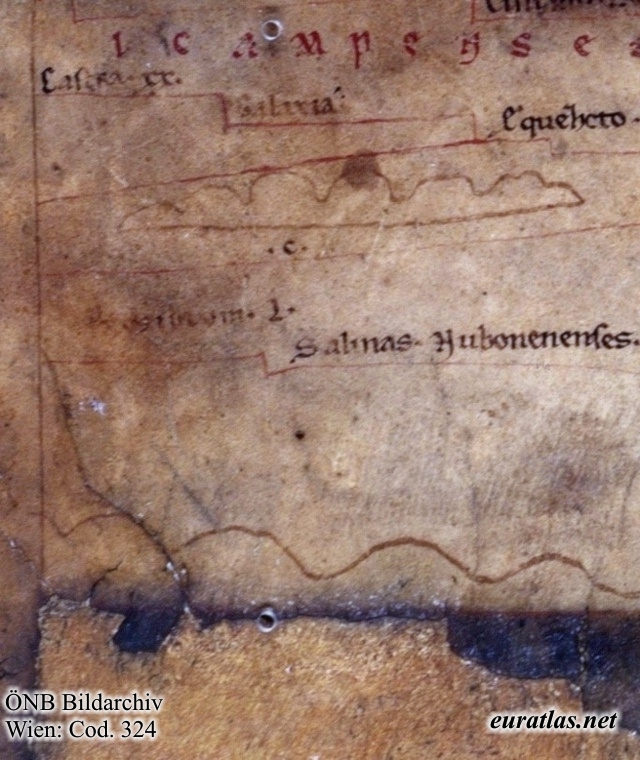 I C A M P E N S E S
Castra. xx.
Galixia:
Equeheto.
.c.
L.
Salinas. Nubonenenses.
ÖNB Bildarchiv
Wien: Cod. 324
euratlas.net